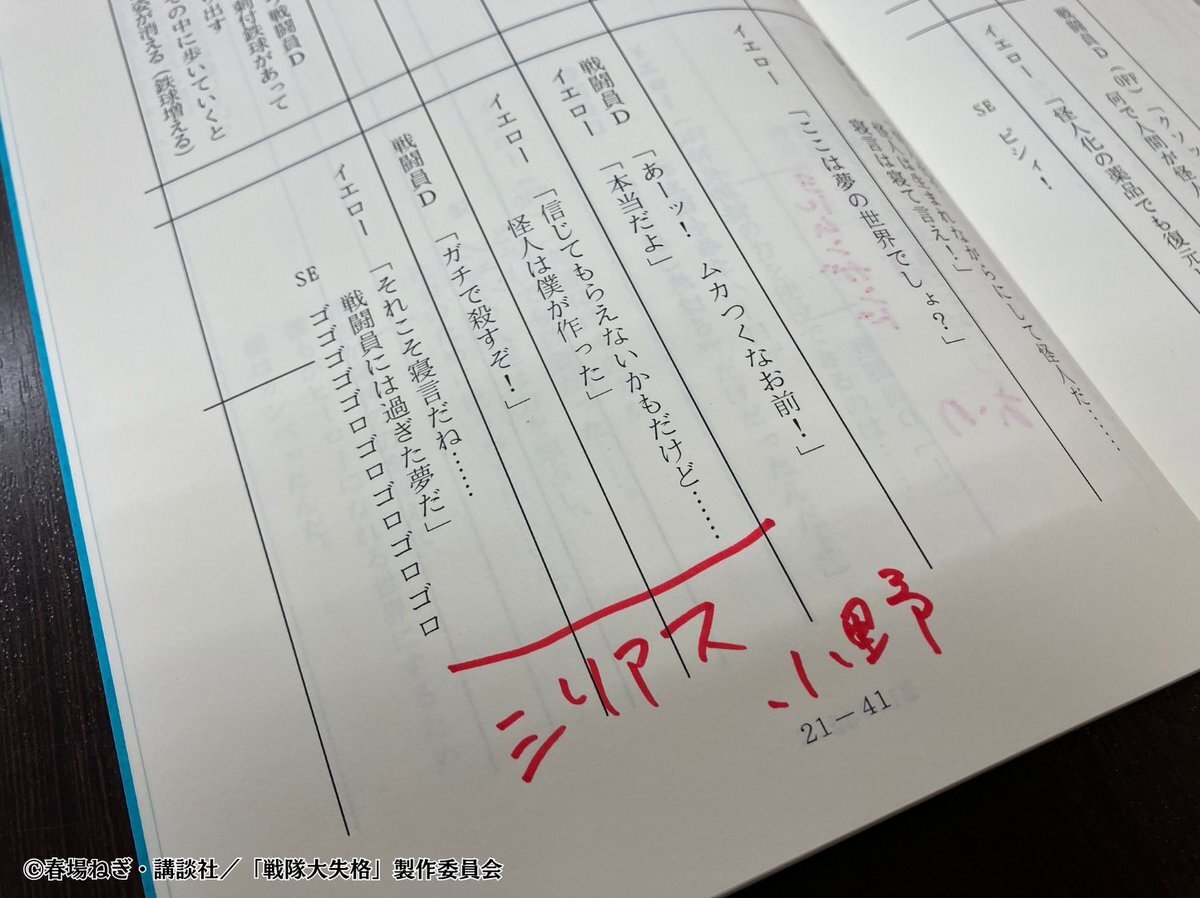 戦闘員D(呼)「クソッ
何で人間が怪
イエロー 「怪人化の薬品でも復元
SE ビシィ!
怪人は生まれながらにして怪人だ……
寝言は寝て言え!」
イエロー 「ここは夢の世界でしょ?」
戦闘員D 「あーッ! ムカつくなお前!」
イエロー 「本当だよ」
イエロー 「信じてもらえないかもだけど……
怪人は僕が作った」
戦闘員D 「ガチで殺すぞ!」
イエロー 「それこそ寝言だね……
戦闘員には過ぎた夢だ」
SE ゴゴゴゴゴロゴロゴロゴロゴロ
戦闘員D
付鉄球があって
出す
その中に歩いていくと
姿が消える(鉄球増える)
シリアス
小野
21-41
©春場ねぎ・講談社/「戦隊大失格」製作委員会